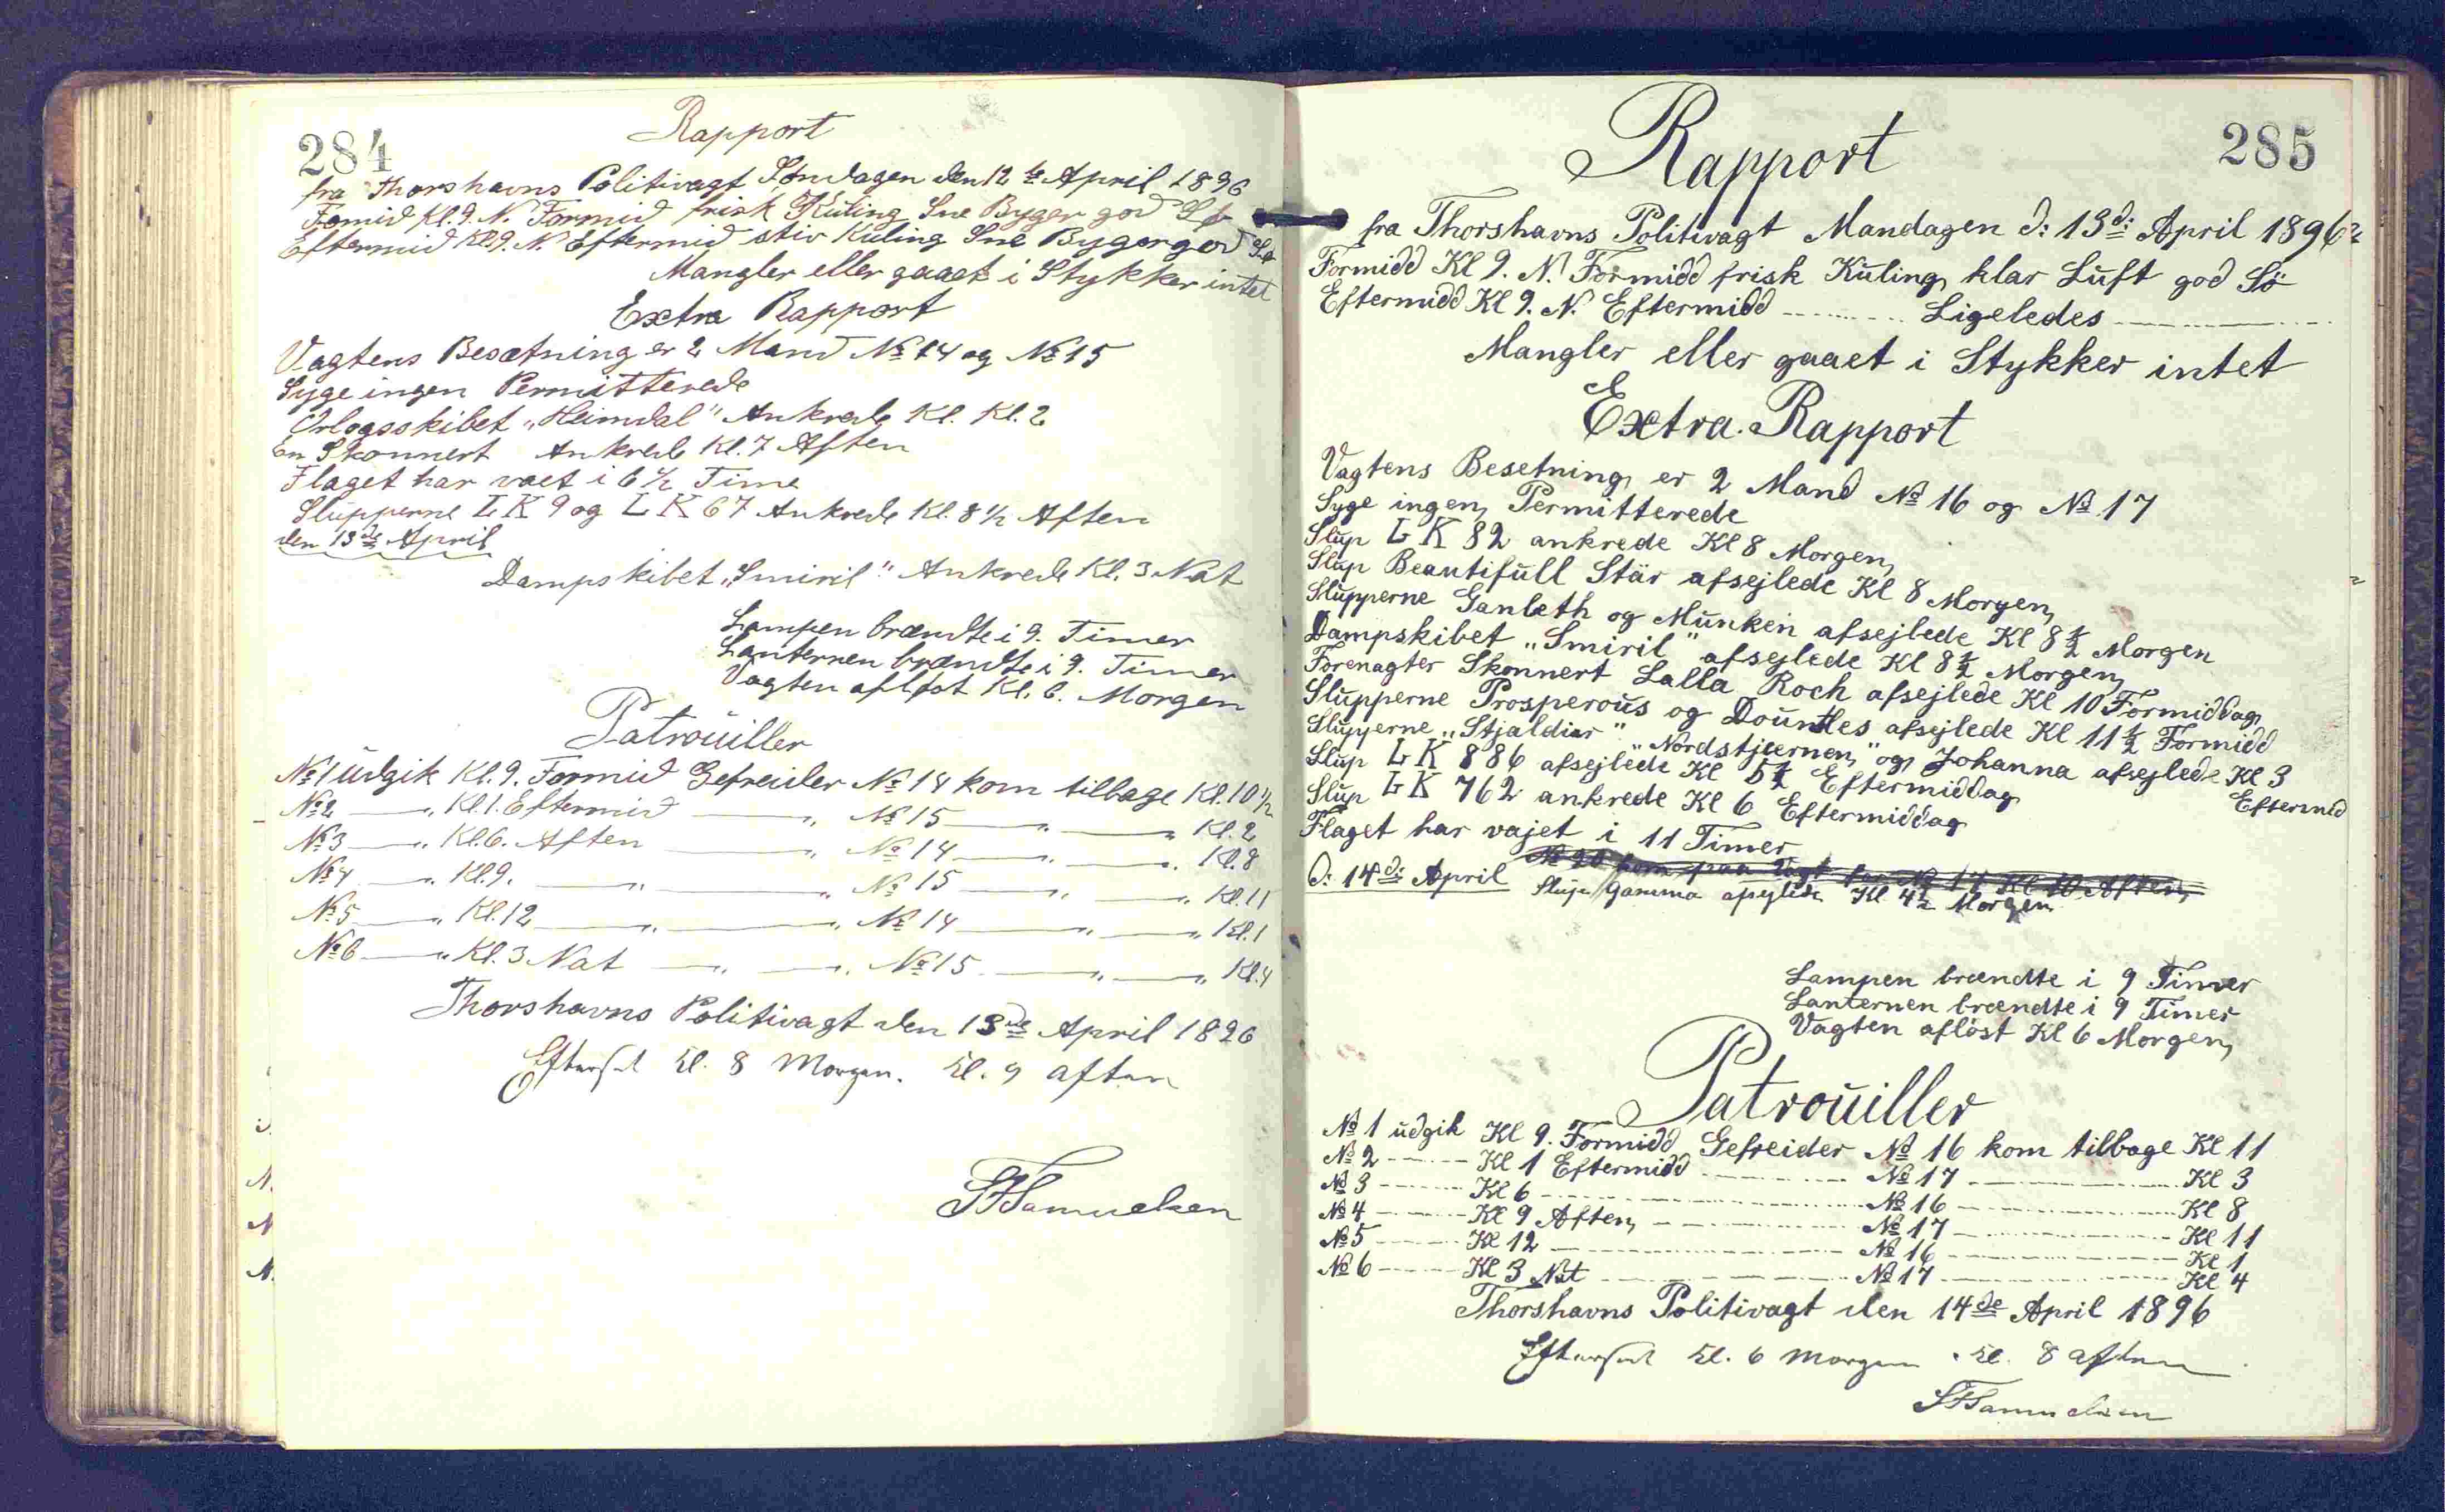 284
Rapport
fra Thorshavns Politivagt Søndagen den 12te April 1896
Formid Kl. 9. N. Formid frisk Kuling Sne Byger god Sø
Eftermid Kl 9. N Eftermid stiv Kuling Sne Byger god Sø
Mangler eller gaaet i Stykker intet
Extra Rapport
Vagtens Besætning er 2 Mand No 14 og No 15
Syge ingen Permitterede
Orlogsskibet „Heimdal" Ankrede Kl. Kl. 2
En Skonnert Ankrede Kl. 7 Aften
Flaget har vaet i 6 1/2 Time
Slupperne LK 9 og LK 67 Ankrede Kl. 8 1/2 Aften
den 13de April
Dampskibet „Smiril" Ankrede Kl. 3 Nat
Lampen brændte i 9. Timer
Lanternen brændte i 9. Timer
Vagten afløst Kl. 6. Morgen
Patrouiller
No 1 Udgik Kl. 9. Formid Gefreider No 14 kom tilbage Kl. 10 1/2
No 2 — „ Kl. 1. Eftermid — „ No 15 — „ — „ Kl. 2
No 3 — „ Kl. 6. Aften — „ No 14 — „ — „ Kl. 8
No 4 — „ Kl. 9. — „ — „ No 15 — „ — „ Kl. 11
No 5 — „ Kl. 12 — „ — „ No 14 — „ — „ Kl. 1
No 6 — „ Kl. 3 Nat — „ — „ No 15 — „ — „ Kl. 4
Thorshavns Politivagt den 13de April 1896
Efterset Kl. 8 Morgen. Kl. 9 aften
Samuelsen
285
Rapport
fra Thorshavns Politivagt Mandagen d: 13d: April 1896
Formidd Kl 9. N. Formidd frisk Küling, klar Lüft god Sö
Eftermidd Kl 9. N. Eftermidd — Ligeledes —
Mangler eller gaaet i Stykker intet
Extra Rapport
Vagtens Besetning, er 2 Mand No 16 og No 17
Syge ingen, Permitterede
Slüp LK 82 ankrede Kl 8 Morgen,
Slüp Beautifüll Stär afsejlede Kl 8 Morgen,
Slüpperne Ganleth og Münken afsejlede Kl 8 1/2 Morgen
Dampskibet „Smiril" afsejlede Kl 8 1/2 Morgen,
Forenagter Skonnert Lalla Roch afsejlede Kl 10 Formiddag,
Slüpperne Prosperoüs og Doüntles afsejlede Kl 11 1/2 Formidd
Slüpperne „Stjaldur" „Nordstjeernen," og Johanna afsejlede Kl 3 Eftermid
Slüp LK 886 afsejlede Kl 5 1/2 Eftermiddag
Slüp LK 762 ankrede Kl 6 Eftermiddag
Flaget har vajet i 11 Timer
No 20 kom paa Vagt for No 17 Kl 10 Aften,
d: 14d: April Slup Gamma afsejlede Kl 4 1/2 Morgen
Lampen brændte i 9 Timer
Lanternen brændte i 9 Timer
Vagten aflöst Kl 6 Morgen,
Patroüiller
No 1 üdgik Kl 9. Formidd, Gefreider No 16 kom tilbage Kl 11
No 2 — Kl 1 Eftermidd — No 17 — Kl 3
No 3 — Kl 6 — No 16 — Kl 8
No 4 — Kl 9 Aften, — No 17 — Kl 11
No 5 — Kl 12 — No 16 — Kl 1
No 6 — Kl 3 Nat — No 17 — Kl 4
Thorshavns Politivagt den 14de April 1896
Efterset Kl. 6 Morgen. Kl. 8 aften
Samuelsen